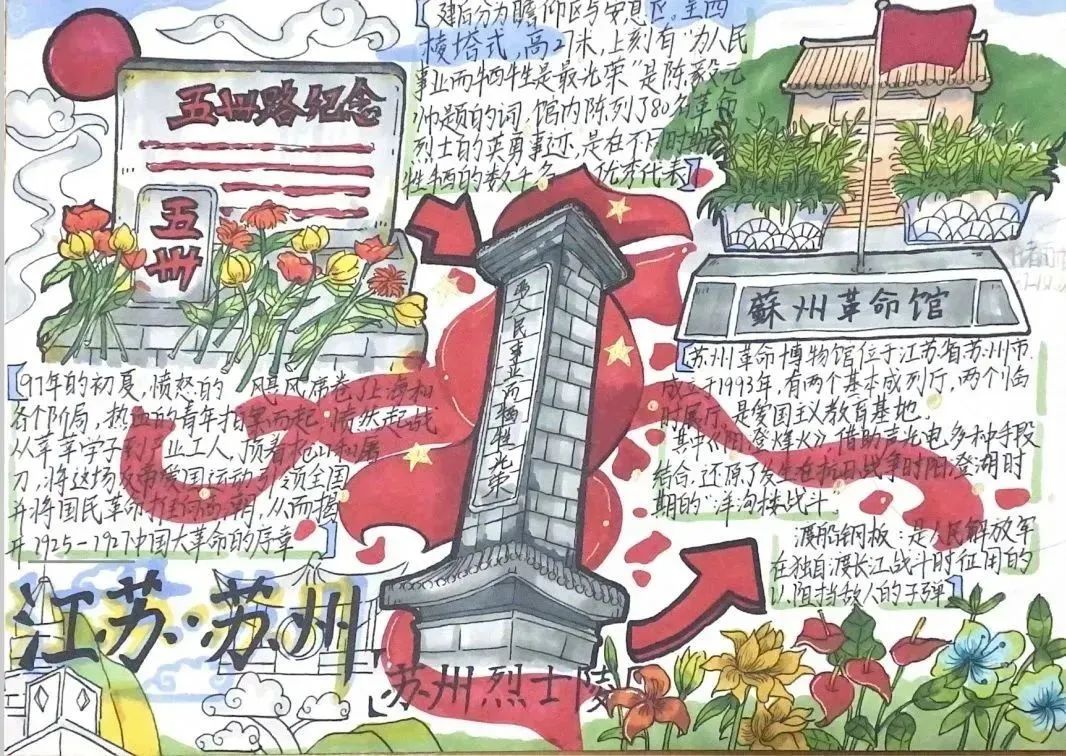 五卅路纪念
五卅
建后分为瞻仰区与安息区。呈四
棱塔式,高27米,上刻有“为人民
事业而牺牲是最光荣”是陈毅元
帅题的词,馆内陈列了80名革命
烈士的英勇事迹,是在不同时期
牺牲的数千名 优秀代表
为人民事业而牺牲光荣
蘇州革命馆
年的初夏,愤怒的 风席卷上海和
各个阶局,热血的青年拍案而起,愤然起战
从莘莘学子到业工人,顶着枪口和屠
刀,将这场反帝爱国运动引领全国
并将国民革命推向高朝,从而揭
开1925-1927中国大革命的序章
苏州革命博物馆位于江苏省苏州市,
成立于1993年,有两个基本成列厅,两个临
时展厅,是爱国主义教育基地.
其中《阳澄烽火》借助声光电多种手段
结合,还原了发生在抗日战争时阳澄湖时
期的“洋沟楼战斗.
渡船钢板:是人民解放军
在独自渡长江战斗时征用的
以阻挡敌人的子弹
江苏·苏州
苏州烈士陵